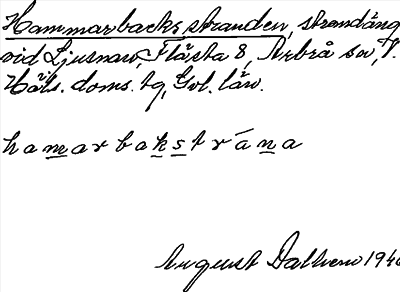 Hammarbacksstranden, strandäng
vid Ljusnan, Flästa 8, Arbrå sn, V.
Häls. doms. tg, Gvl. län.
hamarbakstrána
August Dalhem 1940